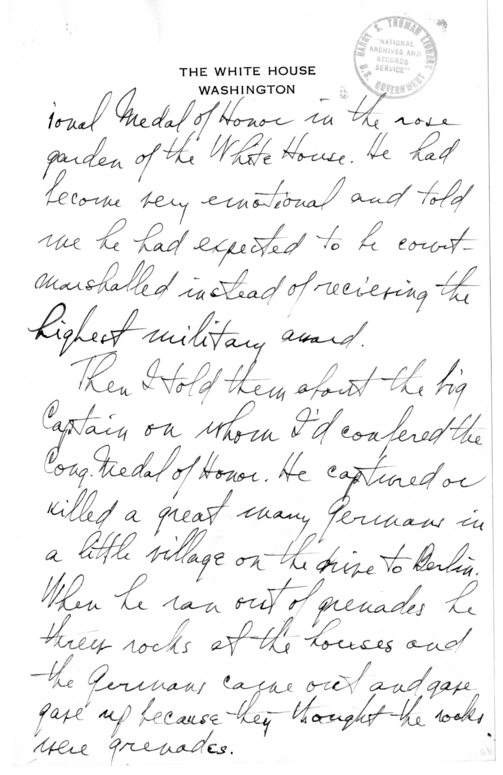 HARRY S. TRUMAN LIBRARY
"NATIONAL
ARCHIVES AND
RECORDS
SERVICE"
U.S. GOVERNMENT
THE WHITE HOUSE
WASHINGTON
ional Medal of Honor in the rose
garden of the White House. He had
become very emotional and told
me he had expected to be court-
marshalled instead of recieving the
highest military award.
Then I told them about the big
Captain on whom I'd confered the
Cong. Medal of Honor. He captured or
killed a great many Germans in
a little village on the drive to Berlin.
When he ran out of grenades he
threw rocks at the houses and
the Germans came out and gave
gave up because they thought the rocks
were grenades.